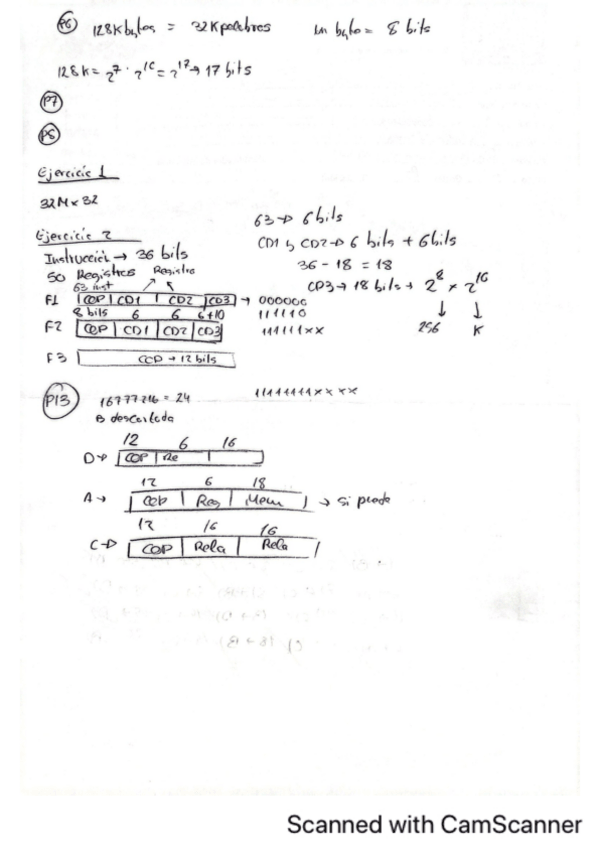 P6 128Kbytes = 32K palabras un byte = 8 bits
128K = 2^7 · 2^10 = 2^17 → 17 bits
P7
P8
Ejercicio 1
32M x 32
63 → 6 bits
Ejercicio 2
CD1 y CD2 → 6 bits + 6 bits
Instrucción → 36 bits
36 - 18 = 18
50 Registros Registro
63 inst
CD3 → 18 bits → 2^8 x 2^10
F1 COP CD1 CD2 CD3 → 000000
8 bits 6 6 6+10 111110
256 K
F2 COP CD1 CD2 CD3 111111xx
F3 COP → 12 bits
11111111xxxx
P13 16777216 = 24
B descartada
12 6 16
D → COP Re
12 6 18
A → COP Reg Mem → si puede
12 16 16
C → COP Rela Rela
Scanned with CamScanner